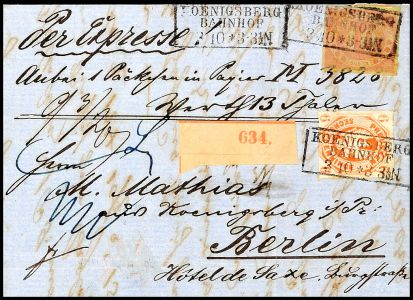 KOENIGSBERG
BAHNHOF
2 10 * 3-3½N
KOENIGSBERG
BAHNHOF
2 10 * 3-3½N
Per Expresse
Anbei 1 Päckchen in Papier M 3820
Werth 13 Thaler
634.
KOENIGSBERG
BAHNHOF
Herrn
M. Mathias
aus Koenigsberg i/Pr:
Berlin
Hôtel de Saxe. Burgstraße